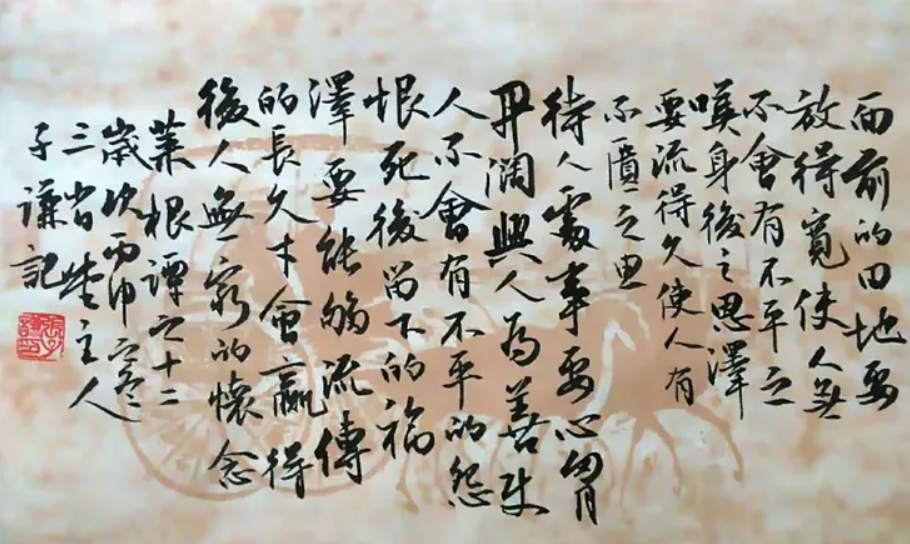 面前的田地要
放得寬使人無
不會有不平之
嘆身後之思澤
要流得久使人有
不匱之思
待人處事要心胸
開闊與人為善使
人不會有不平的怨
恨死後留下的福
澤要能夠流傳
的長久才會贏得
後人無窮的懷念
菜根譚之十二
歲次丙申之冬
三省堂主人
子謙記